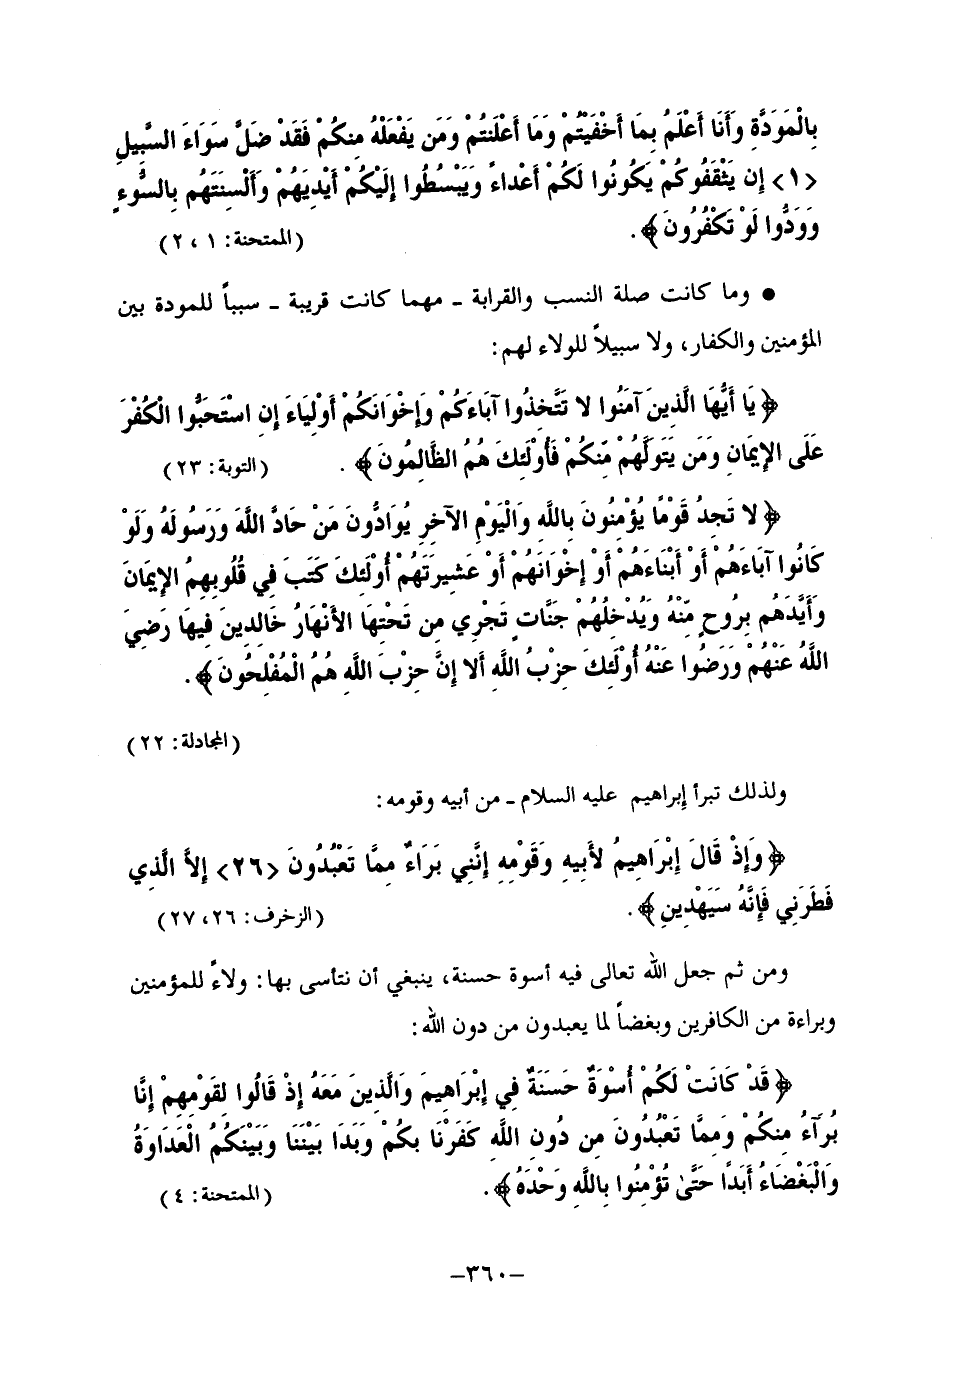 بِالْمَوَدَّةِ وَأَنَا أَعْلَمُ بِمَا أَخْفَيْتُمْ وَمَا أَعْلَنتُمْ وَمَن يَفْعَلْهُ مِنكُمْ فَقَدْ ضَلَّ سَوَاءَ السَّبِيلِ
<١> إِن يَثْقَفُوكُمْ يَكُونُوا لَكُمْ أَعْداءً وَيَبْسُطُوا إِلَيْكُمْ أَيْدِيَهُمْ وَأَلْسِنَتَهُم بِالسُّوءِ
وَوَدُّوا لَوْ تَكْفُرُونَ﴾. (الممتحنة: ١ ، ٢)
● وما كانت صلة النسب والقرابة ـ مهما كانت قريبة ـ سبباً للمودة بين
المؤمنين والكفار، ولا سبيلاً للولاء لهم:
﴿يَا أَيُّهَا الَّذِينَ آمَنُوا لا تَتَّخِذُوا آبَاءَكُمْ وَإِخْوَانَكُمْ أَوْلِيَاءَ إِنِ اسْتَحَبُّوا الْكُفْرَ
عَلَى الإِيمَانِ وَمَن يَتَوَلَّهُمْ مِّنكُمْ فَأُوْلَئِكَ هُمُ الظَّالِمُونَ﴾. (التوبة: ٢٣)
﴿لا تَجِدُ قَوْمًا يُؤْمِنُونَ بِاللَّهِ وَالْيَوْمِ الآخِرِ يُوَادُّونَ مَنْ حَادَّ اللَّهَ وَرَسُولَهُ وَلَوْ
كَانُوا آبَاءَهُمْ أَوْ أَبْنَاءَهُمْ أَوْ إِخْوَانَهُمْ أَوْ عَشِيرَتَهُمْ أُوْلَئِكَ كَتَبَ فِي قُلُوبِهِمُ الإِيمَانَ
وَأَيَّدَهُم بِرُوحٍ مِّنْهُ وَيُدْخِلُهُمْ جَنَّاتٍ تَجْرِي مِن تَحْتِهَا الأَنْهَارُ خَالِدِينَ فِيهَا رَضِيَ
اللَّهُ عَنْهُمْ وَرَضُوا عَنْهُ أُوْلَئِكَ حِزْبُ اللَّهِ أَلا إِنَّ حِزْبَ اللَّهِ هُمُ الْمُفْلِحُونَ﴾.
(المجادلة: ٢٢)
ولذلك تبرأ إبراهيم عليه السلام ـ من أبيه وقومه:
﴿وَإِذْ قَالَ إِبْرَاهِيمُ لأَبِيهِ وَقَوْمِهِ إِنَّنِي بَرَاءٌ مِمَّا تَعْبُدُونَ <٢٦> إِلاَّ الَّذِي
فَطَرَنِي فَإِنَّهُ سَيَهْدِينِ﴾. (الزخرف: ٢٦، ٢٧)
ومن ثم جعل الله تعالى فيه أسوة حسنة، ينبغي أن نتأسى بها: ولاءً للمؤمنين
وبراءة من الكافرين وبغضاً لما يعبدون من دون الله:
﴿قَدْ كَانَتْ لَكُمْ أُسْوَةٌ حَسَنَةٌ فِي إِبْرَاهِيمَ وَالَّذِينَ مَعَهُ إِذْ قَالُوا لِقَوْمِهِمْ إِنَّا
بُرَآءُ مِنكُمْ وَمِمَّا تَعْبُدُونَ مِن دُونِ اللَّهِ كَفَرْنَا بِكُمْ وَبَدَا بَيْنَنَا وَبَيْنَكُمُ الْعَدَاوَةُ
وَالْبَغْضَاءُ أَبَدًا حَتَّىٰ تُؤْمِنُوا بِاللَّهِ وَحْدَهُ﴾. (الممتحنة: ٤)
–٣٦٠–